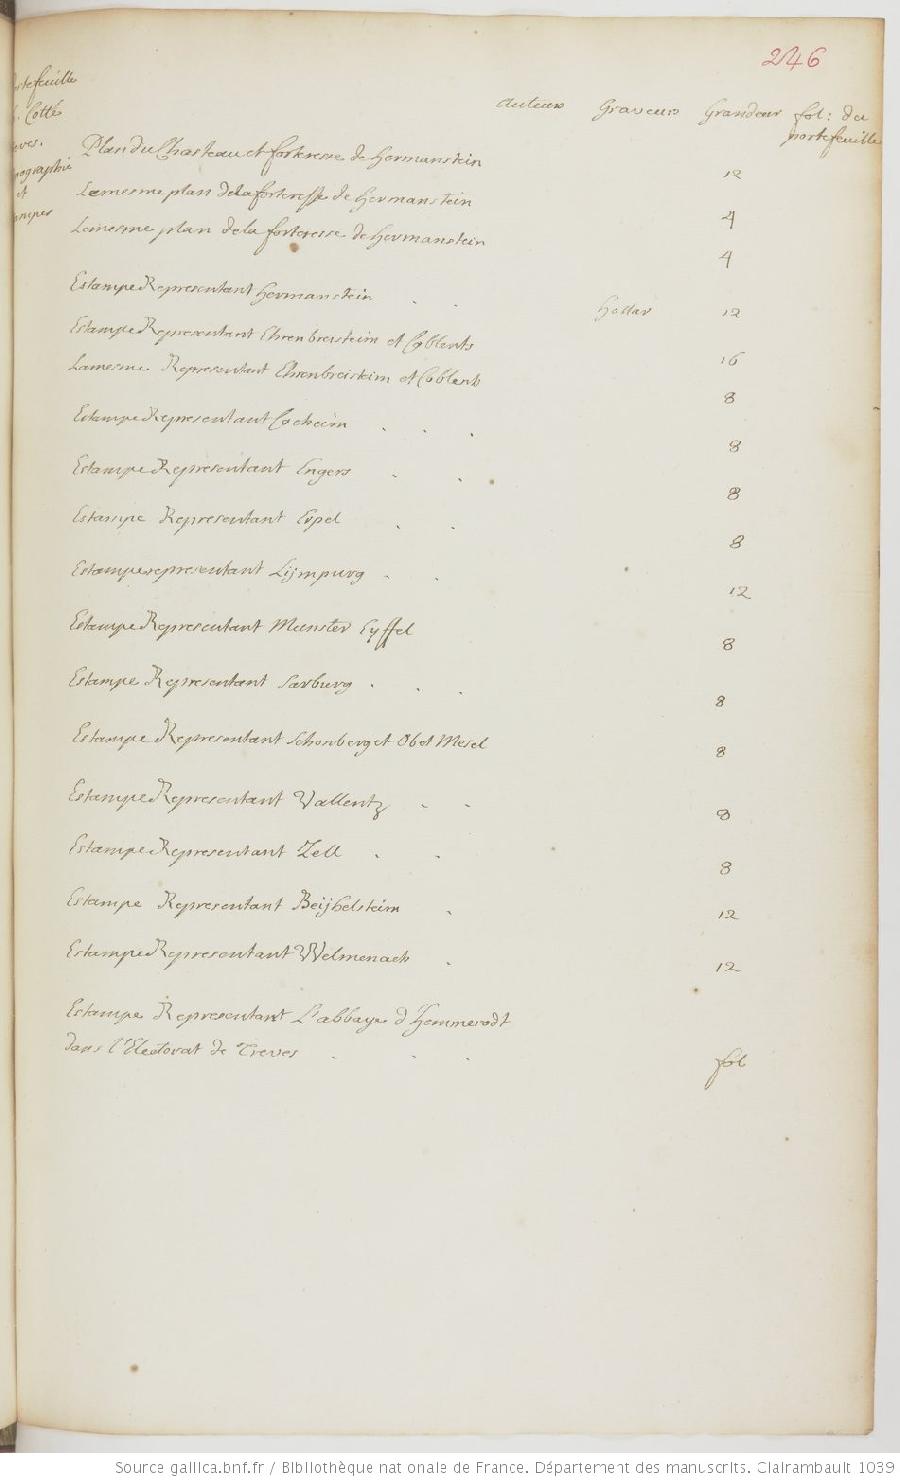 246
auteurs Graveurs Grandeur fol: du
portefeuille
Plan du Chasteau et forteresse de Hermanstein 12
Le mesme plan de la forteresse de Hermanstein 4
Le mesme plan de la forteresse de Hermanstein 4
Estampe Representant Hermanstein . . Hollar 12
Estampe Representant Ehrenbreisteim et Coblents 16
La mesme Representant Ehrenbreisteim et Coblents 8
Estampe Representant Cocheim . . . 8
Estampe Representant Engers . . 8
Estampe Representant Erpel . . 8
Estampe representant Lijmpurg . . 12
Estampe Representant Munster Eyffel 8
Estampe Representant Sarburg . . . 8
Estampe Representant Schonberg et Obet Wesel 8
Estampe Representant Vallentz . . 8
Estampe Representant Zell . . 8
Estampe Representant Beijhelsteim . 12
Estampe Representant Welmenach . 12
Estampe Representant L'abbaye d'Hemmerodt
dans l'Electorat de Treves . . . fol
Source gallica.bnf.fr / Bibliothèque nationale de France. Département des manuscrits. Clairambault 1039